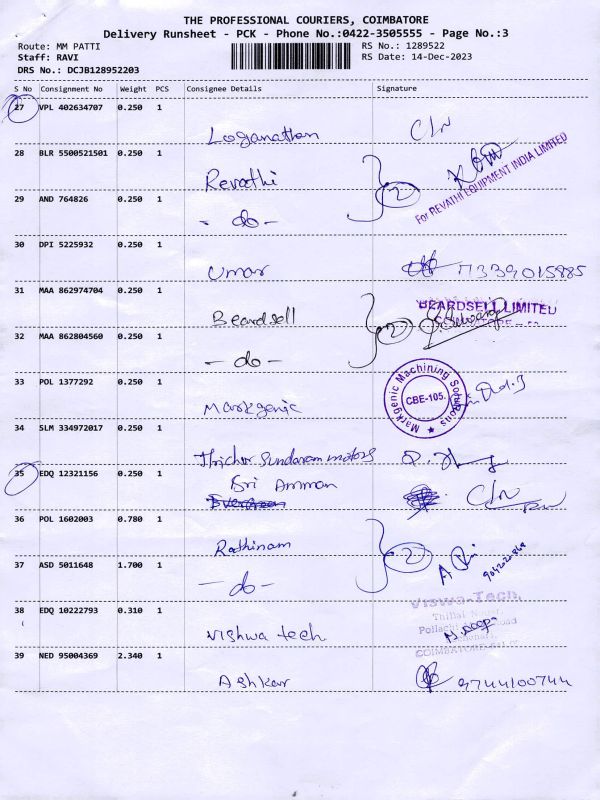 THE PROFESSIONAL COURIERS, COIMBATORE
Delivery Runsheet - PCK - Phone No.:0422-3505555 - Page No.:3
Route: MM PATTI RS No.: 1289522
Staff: RAVI RS Date: 14-Dec-2023
DRS No.: DCJB128952203
S No Consignment No Weight PCS Consignee Details Signature
27 VPL 402634707 0.250 1
Loganathan
28 BLR 5500521501 0.250 1
Revathi 2
For REVATHI EQUIPMENT INDIA LIMITED
29 AND 764826 0.250 1
- do -
30 DPI 5225932 0.250 1
Umar
31 MAA 862974704 0.250 1
BEARDSELL LIMITED
Beardsell 2
32 MAA 862804560 0.250 1
- do -
33 POL 1377292 0.250 1
Markgenic Machining Solutions
CBE-105.
Markgenic
34 SLM 334972017 0.250 1
Thichur Sundaram motors
35 EDQ 12321156 0.250 1
Sri Amman
36 POL 1602003 0.780 1
Rathinam 2
37 ASD 5011648 1.700 1
- do -
38 EDQ 10222793 0.310 1
Viswa-Tech,
Vishwa tech
39 NED 95004369 2.340 1
Ashkar 9744100744